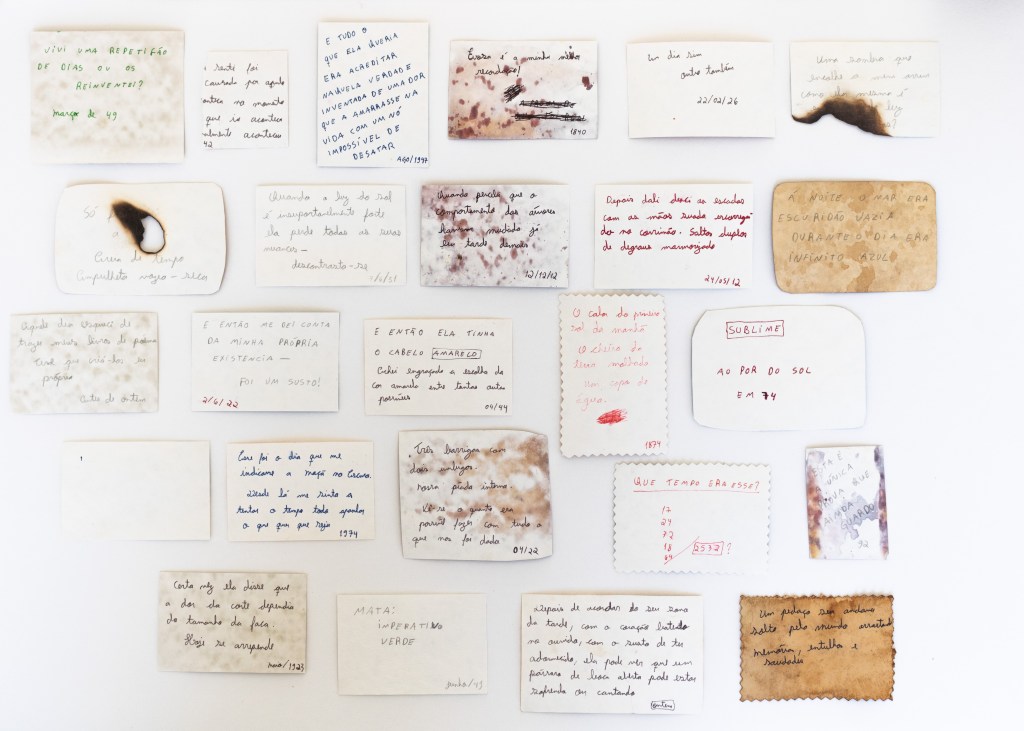 VIVI UMA REPETIÇÃO
DE DIAS OU OS
REINVENTEI?
março de 49
foi
causado por
no momento
que
42
E TUDO O
QUE ELA QUERIA
ERA ACREDITAR
NAQUELA VERDADE
INVENTADA DE UMA DOR
QUE A AMARRASSE NA
VIDA COM UM NÓ
IMPOSSÍVEL DE
DESATAR
AGO/1997
Essa é a minha
recordação!
1840
Um dia sim
outro também
22/02/26
Uma sombra que
encolhe o meu
mesmo é
luz
?
Só
a
Cheia de tempo
Ampulheta
Quando a luz do sol
é insuportavelmente forte
ela perde todas as suas
nuances—
descontrasta-se
Quando percebi que o
comportamento das árvores
havia mudado já
era tarde demais
12/12/12
Depois dali desci as escadas
com as mãos suada escorregan
do no corrimão. Saltos duplos
de degraus marmorizado
24/03/12
À NOITE O MAR ERA
ESCURIDÃO VAZIA
DURANTE O DIA ERA
INFINITO AZUL
esqueci de
trazer meus livros de poema
Tive que criá-los eu
própria
Antes de ontem
E ENTÃO ME DEI CONTA
DA MINHA PRÓPRIA
EXISTÊNCIA—
FOI UM SUSTO!
2/6/22
E ENTÃO ELA TINHA
O CABELO AMARELO
Achei engraçado a escolha da
cor amarelo entre tantas outras
possíveis
04/44
O calor do primeiro
sol da manhã
O cheiro da
terra molhando
um copo de
água.
1874
SUBLIME
AO POR DO SOL
EM 74
Esse foi o dia que me
indicaram a maçã no Circuso.
Desde lá me sinto a
tentar o tempo todo
o que quer que seja
1974
Três barrigas com
dois umbigos.
nossa piada interna.
o quanto era
possível fazer com tudo o
que nos foi dado
04/22
QUE TEMPO ERA ESSE?
17
29
72
18
2532 ?
TÁ É O
ÚNICA
PROVA QUE
AINDA
GUARDO
92
Certa vez ela disse que
a dor do corte dependia
do tamanho da faca.
Hoje se arrepende
maio/1923
MATA:
IMPERATIVO
VERDE
junho/
Depois de acordar do seu sono
da tarde, com o coração batendo
no ouvido, com o susto de ter
adormecido, ela pode ver que um
pássaro de boca aberta pode estar
sofrendo ou cantando
ontem
Um pedaço sem andano
solto pelo mundo
memória, entulhos e
saudades